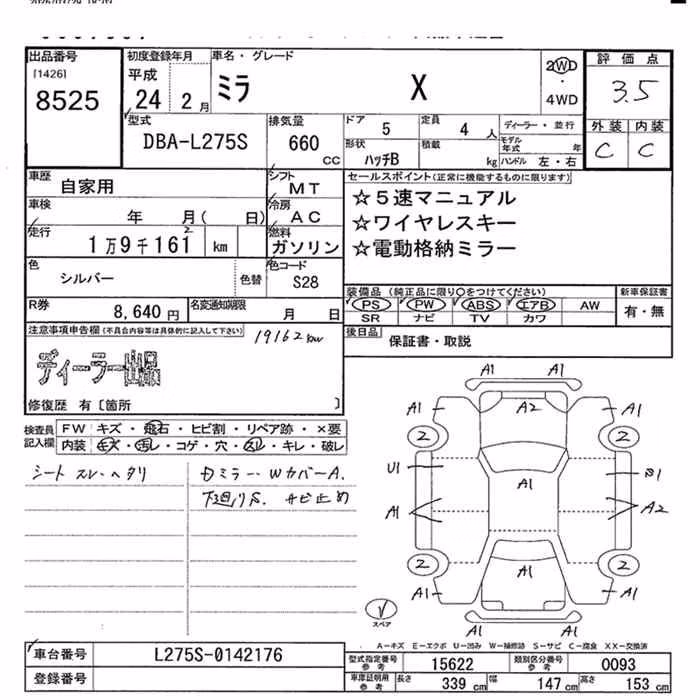 出品番号
[1426]
8525
初度登録年月
平成
24 2 月
車名・グレード
ミラ X
2WD
・
4WD
評価点
3.5
外装 内装
C C
型式
DBA-L275S
排気量
660
CC
ドア 5
定員 4 人
ディーラー・並行
形状 ハッチB
積載 kg
モデル年式 年
ハンドル 左・右
車歴
自家用
シフト
MT
セールスポイント(正常に機能するものに限ります)
☆5速マニュアル
☆ワイヤレスキー
☆電動格納ミラー
車検
年 月( 日)
冷房
AC
走行
1万9千161 km
2
燃料
ガソリン
色
シルバー
色替
色コード
S28
装備品 (純正品に限り○をつけてください)
PS PW ABS エアB AW
SR ナビ TV カワ
新車保証書
有・無
R券
8,640 円
名変通知期限
月 日
後日品
保証書・取説
注意事項申告欄(不具合内容等は具体的に記入して下さい)
19162 km
ディーラー出品
修復歴 有〔箇所 〕
検査員
記入欄
FW キズ・飛石・ヒビ割・リペア跡・×要
内装 キズ・汚レ・コゲ・穴・スレ・キレ・破レ
シート スレ・ヘタリ
下廻りS. サビ止め
A1 A1
A1 A2 A1
2 2
U1 A1
A1 A1 A2
2 A1 2
A1 A1
A1 A1
スペア
A-キズ E-エクボ U-凹み W-補修跡 S-サビ C-腐食 XX-交換済
車台番号
L275S-0142176
登録番号
型式指定番号
参考
15622
類別区分番号
参考
0093
車庫証明用
参考
長さ 339 cm
幅 147 cm
高さ 153 cm